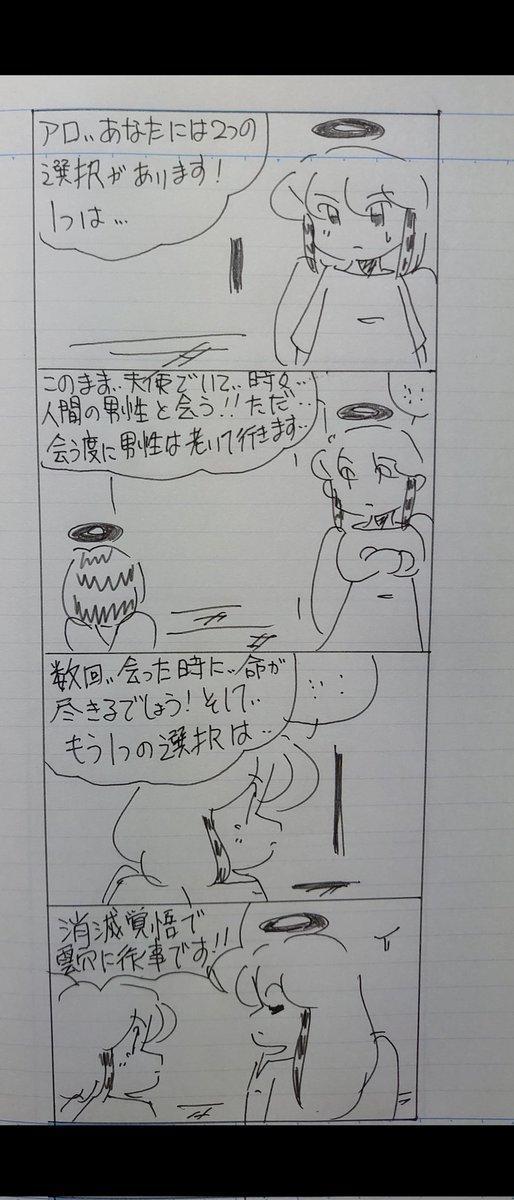 アロ､､あなたには2つの
選択があります!
1つは…
このまま､､天使でいて､､時々…
人間の男性と会う!!ただ…
会う度に男性は老いて行きます…
数回､､会った時に､､命が
尽きるでしょう!そして､､
もう1つの選択は…
消滅覚悟で
雲穴に従事です!!